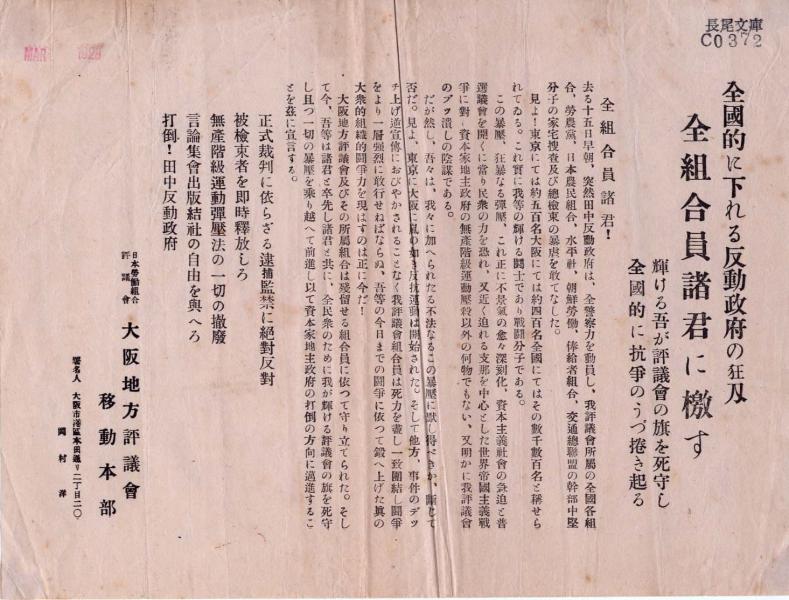 長尾文庫
C0372
MAR 1928
全國的に下れる反動政府の狂刄
全組合員諸君に檄す
輝ける吾が評議會の旗を死守し
全國的に抗爭のうづ捲き起る
全組合員諸君!
去る十五日早朝、突然田中反動政府は、全警察力を動員し、我評議會所屬の全國各組
合、勞農黨、日本農民組合、水平社、朝鮮勞働、俸給者組合、交通總聯盟の幹部中堅
分子の家宅搜査及び總檢束の暴虐を敢てなした。
見よ!東京にては約五百名大阪にては約四百名全國にてはその數千數百名と稱せら
れてゐる。これ實に我等の輝ける鬪士であり戰鬪分子である。
この暴壓、狂暴なる彈壓、これ正に不景氣の愈々深刻化、資本主義社會の急迫と普
選議會を開くに當り民衆の力を恐れ、又近く迫れる支那を中心とした世界帝國主義戰
爭に對し資本家地主政府の無產階級運動壓殺以外の何物でもない、又明かに我評議會
のデツチ潰しの陰謀である。
だが然し、吾々は、我々に加へられたる不法なるこの暴壓に默し得べきか、斷じて
否だ。見よ、東京に大阪に嵐の如き反抗運動は開始された。そして他方、事件のデツ
チ上げ逆宣傳におびやかされることなく我評議會組合員は死力を盡し一致團結し鬪爭
をより一層强烈に敢行せねばならぬ、吾等の今日までの鬪爭に依つて鍛へ上げた眞の
大衆的組織的鬪爭力を現はすのは正に今だ!
大阪地方評議會及びその所屬組合は殘留せる組合員に依つて守り立てられた。そし
て今、吾等は諸君と卒先し諸君と共に、全民衆のために我が輝ける評議會の旗を死守
し且つ一切の暴壓を乘り越へて前進し以て資本家地主政府の打倒の方向に邁進するこ
とを茲に宣言する。
正式裁判に依らざる逮捕監禁に絕對反對
被檢束者を即時釋放しろ
無產階級運動彈壓法の一切の撤廢
言論集會出版結社の自由を與へろ
打倒!田中反動政府
日本勞働組合
評議會
大阪地方評議會
移動本部
署名人 大阪市港區本田通り二丁目二〇
岡村洋